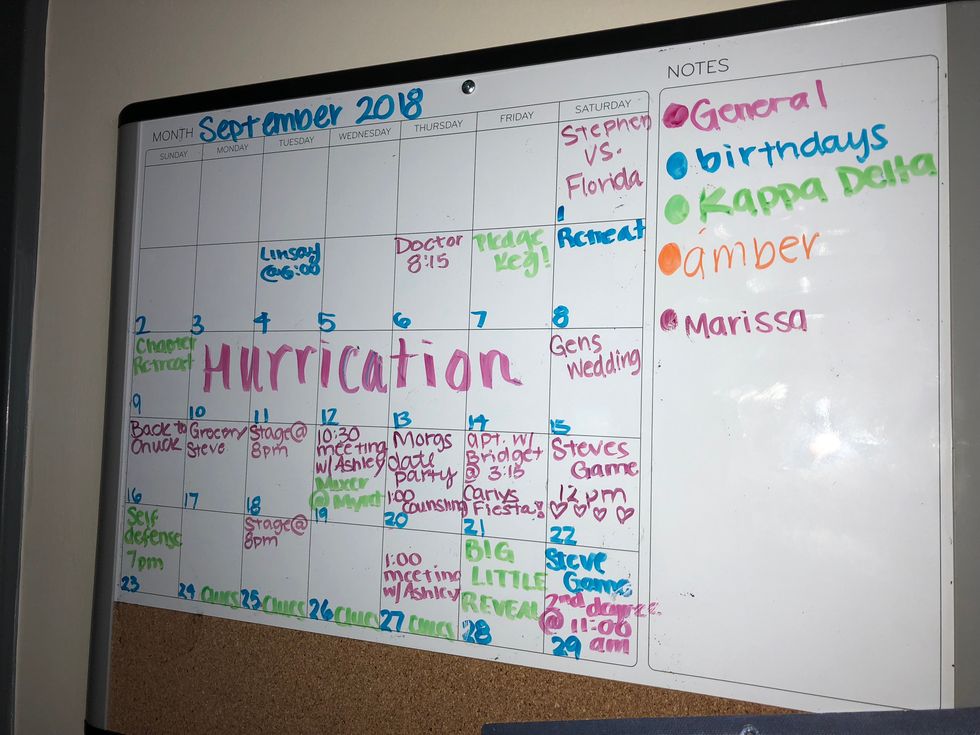 NOTES
MONTH September 2018
SUNDAY MONDAY TUESDAY WEDNESDAY THURSDAY FRIDAY SATURDAY
Stephen
vs.
Florida
1
Linsay
@6:00
Doctor
8:15
Pledge
Keg!
Retreat
2 3 4 5 6 7 8
Chapter
Retreat
Hurrication
Gens
Wedding
9 10 11 12 13 14 15
Back to
Chuck
16
Grocery
Steve
17
Stage@
8pm
18
10:30
meeting
w/Ashley
Mixer
@
19
Morgs
date
party
1:00
20
apt. w/
Bridget
@ 3:15
Carlys
Fiesta!
21
Steves
Game
12pm
22
Self
defense
7pm
23
24
Stage@
8pm
25
26
1:00
meeting
w/Ashley
27
BIG
LITTLE
REVEAL
28
Steve
Game
2nd
@ 11:00
am
29
General
birthdays
Kappa Delta
ámber
Marissa